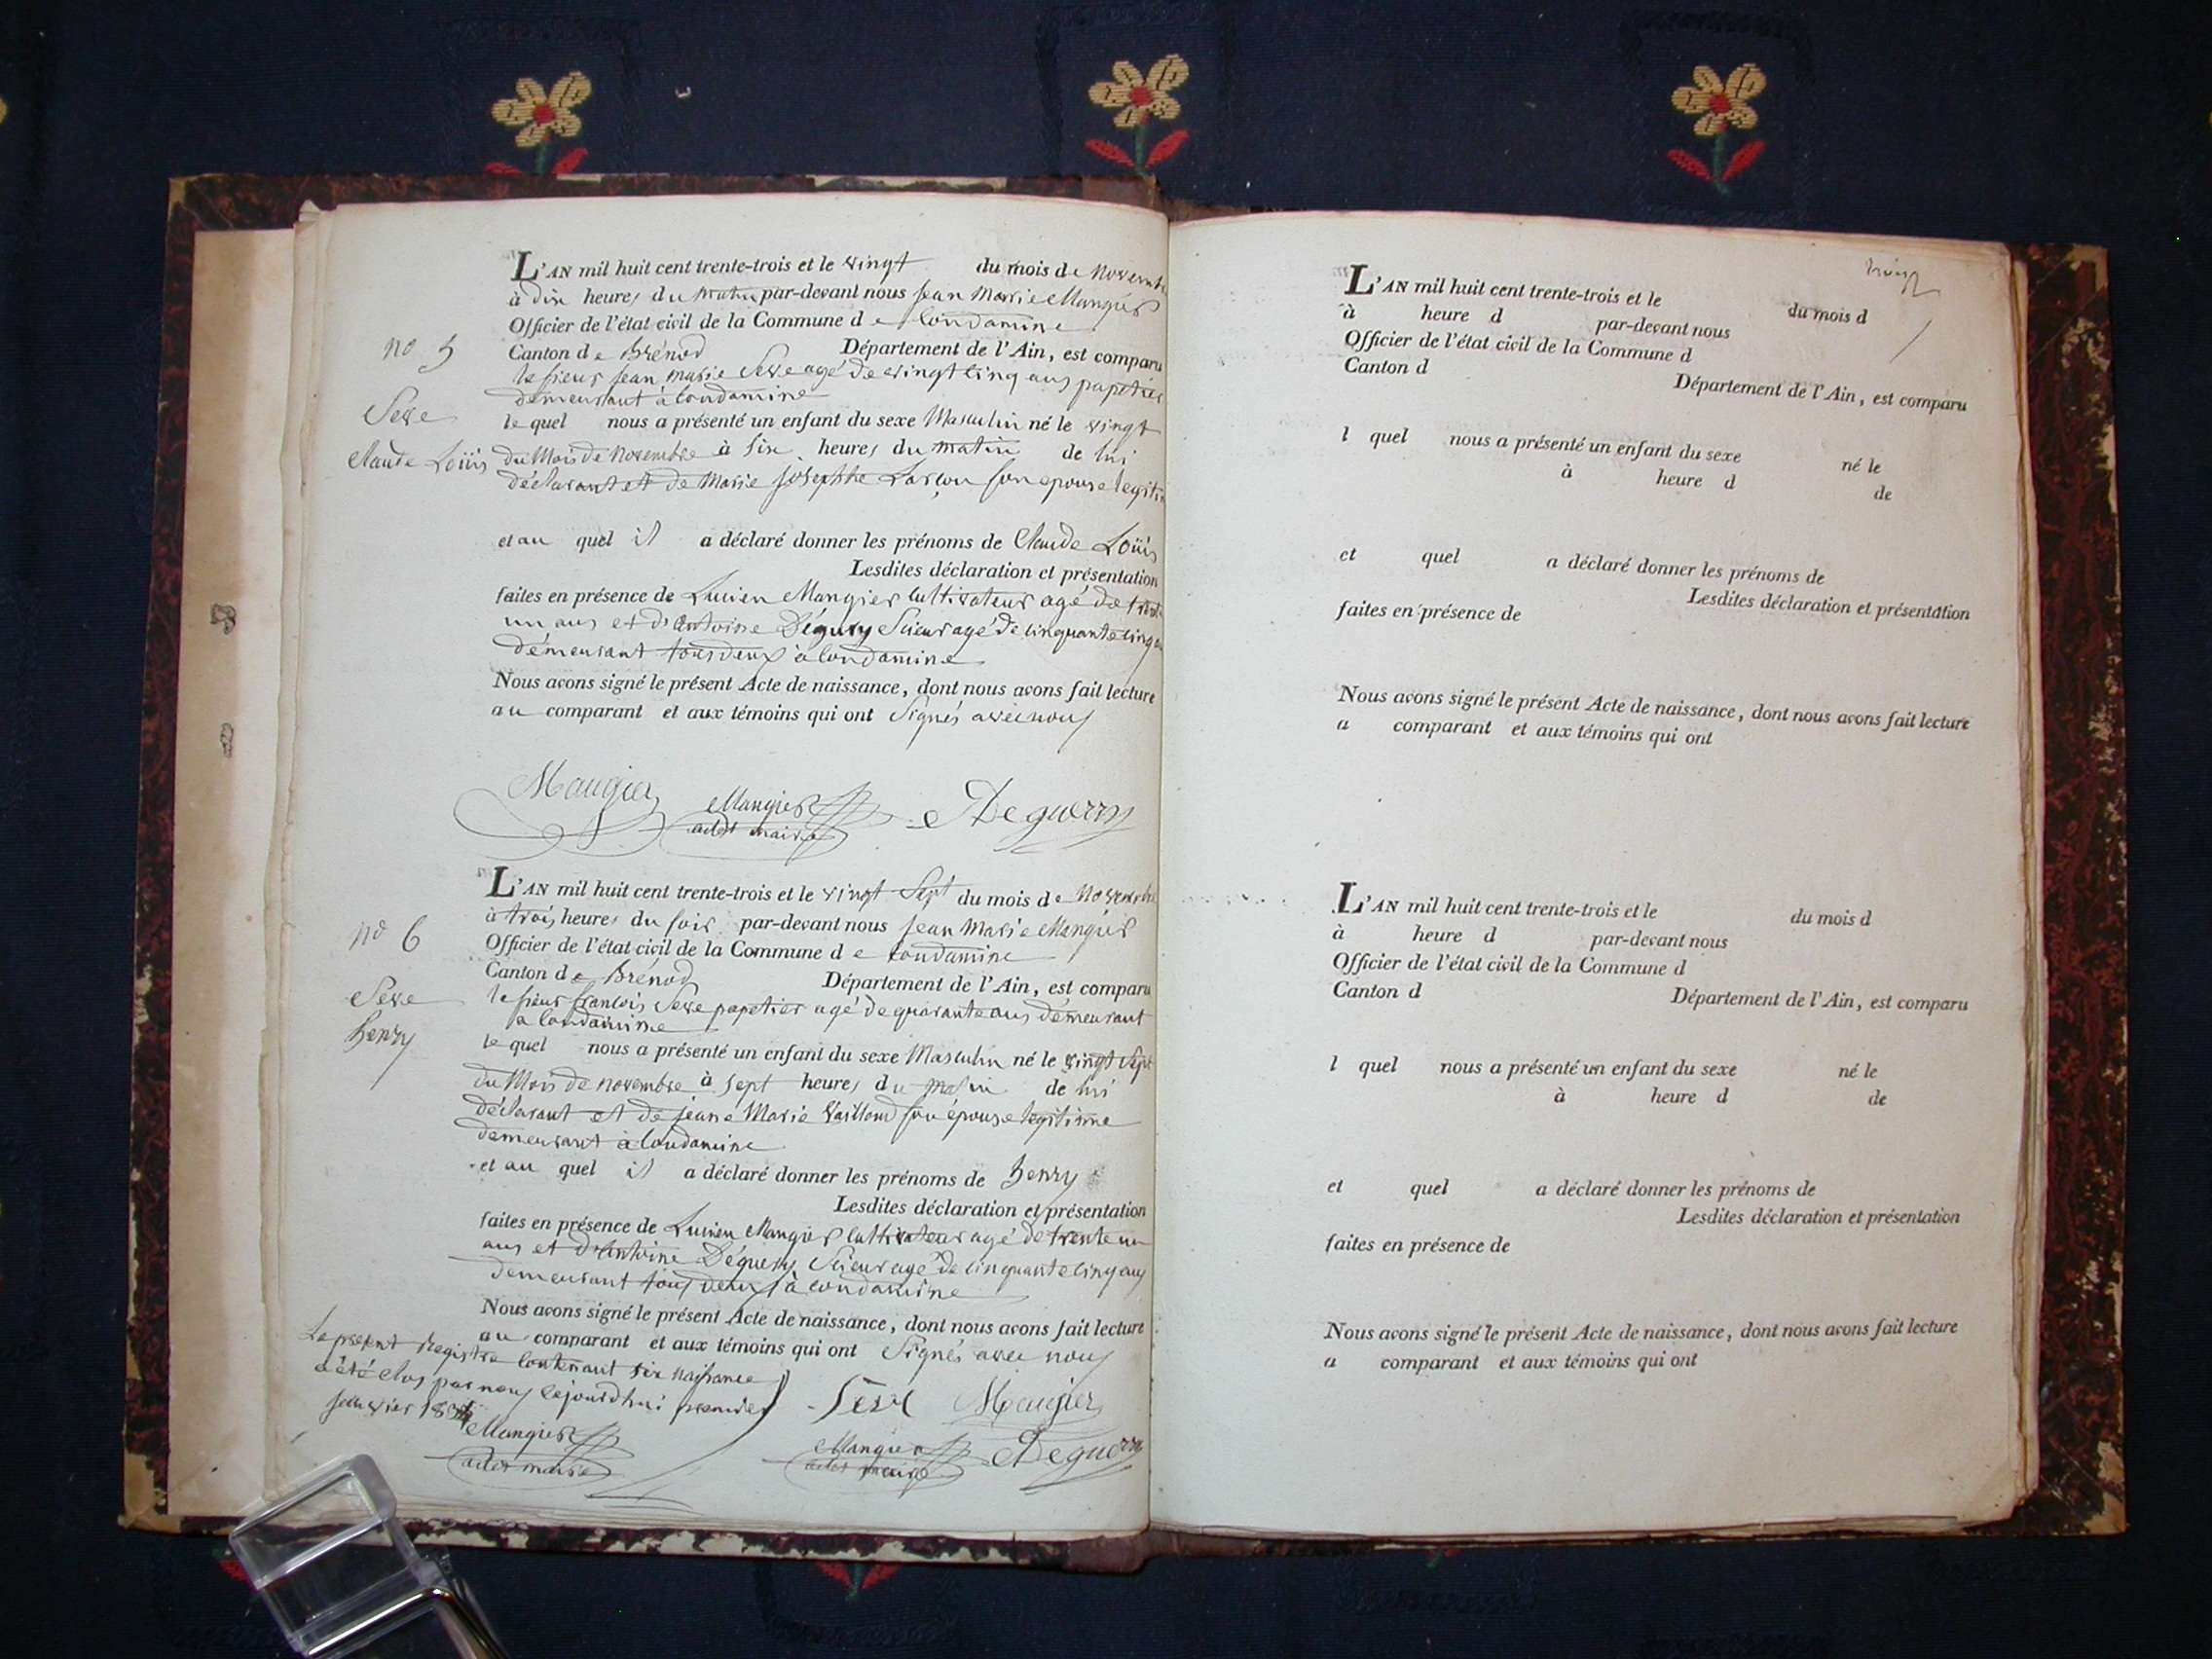 L'AN mil huit cent trente-trois et le vingt du mois de novembre
à dix heures du matin par-devant nous jean Marie Mangier
Officier de l'état civil de la Commune de Condamine
Canton de Brénod Département de l'Ain, est comparu
le sieur jean marie Seve agé de vingt cinq ans papetier
demeurant à Condamine
no 5
Seve
Claude Loüis
le quel nous a présenté un enfant du sexe Masculin né le vingt
du Mois de novembre à six heures du matin de lui
déclarant et de Marie josephte son epouse legitime
et au quel il a déclaré donner les prénoms de Claude Loüis
Lesdites déclaration et présentation
faites en présence de Lucien Mangier cultivateur agé de trente
un ans et d'Antoine Déguery Scieur agé de cinquante cinq
démeurant tous deux à Condamine
Nous avons signé le présent Acte de naissance, dont nous avons fait lecture
au comparant et aux témoins qui ont Signés avec nous
Maugier Mangier Deguerry
maire
L'AN mil huit cent trente-trois et le vingt Sept du mois de novembre
à trois heures du soir par-devant nous jean Marie Mangier
Officier de l'état civil de la Commune de Condamine
Canton de Brénod Département de l'Ain, est comparu
le sieur françois Seve papetier agé de quarante ans démeurant
à Condamine
no 6
Seve
henry
le quel nous a présenté un enfant du sexe Masculin né le vingt Sept
du Mois de novembre à sept heures du matin de lui
déclarant et de jeane Marie son épouse legitime
demeurant à Condamine
et au quel il a déclaré donner les prénoms de henry
Lesdites déclaration et présentation
faites en présence de Lucien Mangier cultivateur agé de trente un
ans et d'Antoine Déguery Scieur agé de cinquante cinq ans
demeurant tous deux à Condamine
Nous avons signé le présent Acte de naissance, dont nous avons fait lecture
au comparant et aux témoins qui ont Signés avec nous
Le present Registre Contenant six naissance
a été clos par nous cejourd'hui premier
janvier 1834
Seve Maugier
Mangier Mangier Deguerry
maire maire
L'AN mil huit cent trente-trois et le du mois d
à heure d par-devant nous
Officier de l'état civil de la Commune d
Canton d Département de l'Ain, est comparu
l quel nous a présenté un enfant du sexe né le
à heure d de
et quel a déclaré donner les prénoms de
Lesdites déclaration et présentation
faites en présence de
Nous avons signé le présent Acte de naissance, dont nous avons fait lecture
a comparant et aux témoins qui ont
L'AN mil huit cent trente-trois et le du mois d
à heure d par-devant nous
Officier de l'état civil de la Commune d
Canton d Département de l'Ain, est comparu
l quel nous a présenté un enfant du sexe né le
à heure d de
et quel a déclaré donner les prénoms de
Lesdites déclaration et présentation
faites en présence de
Nous avons signé le présent Acte de naissance, dont nous avons fait lecture
a comparant et aux témoins qui ont